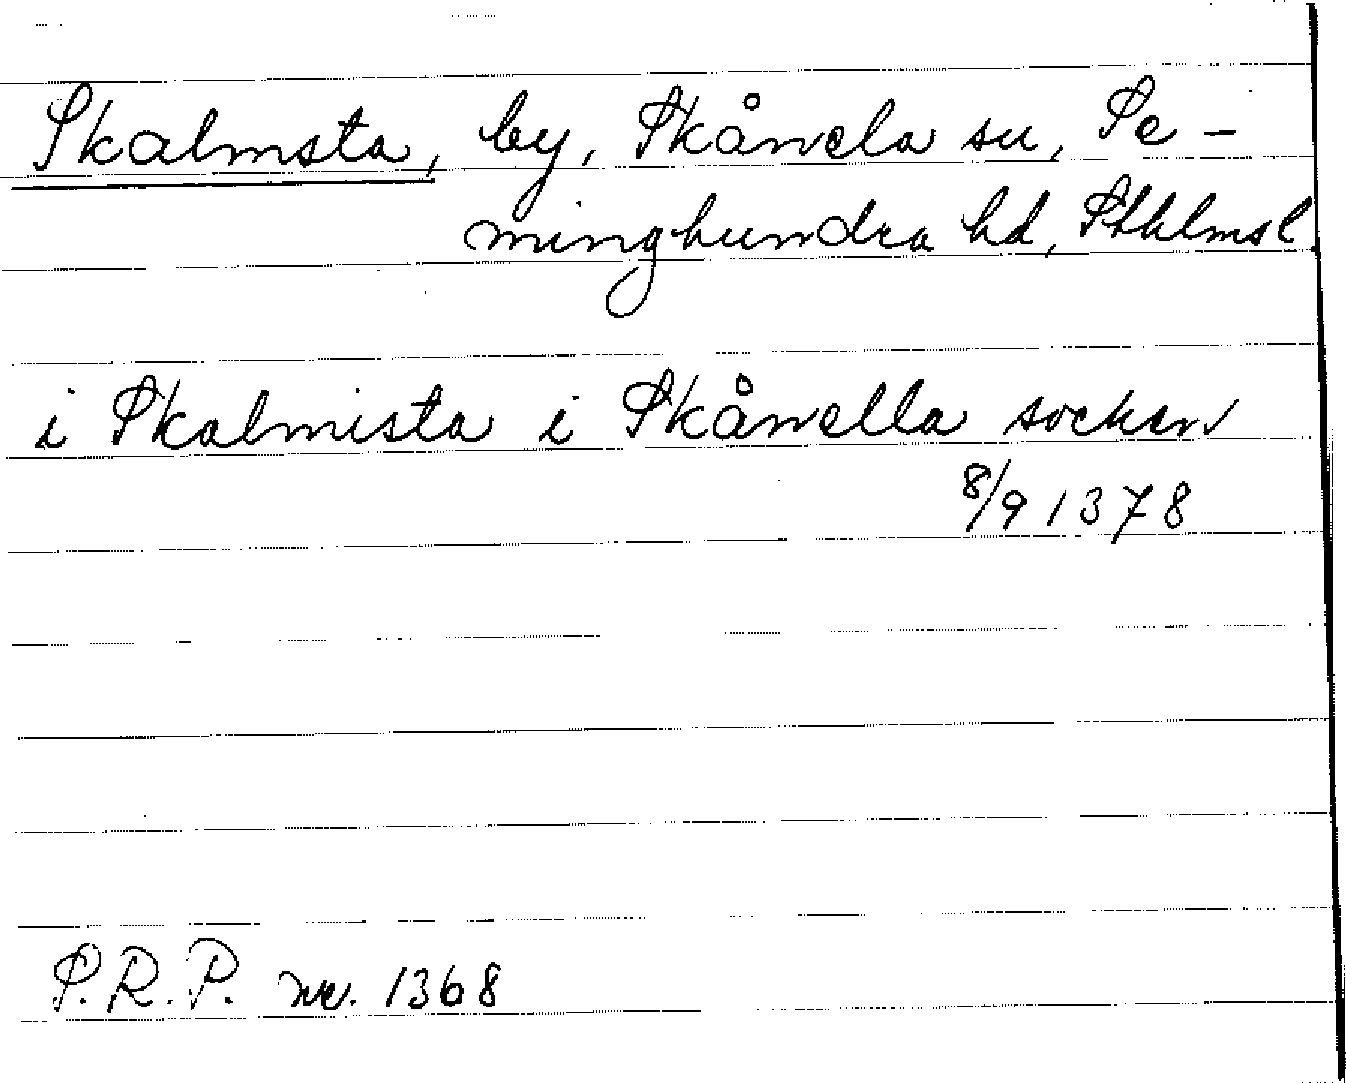 Skalmsta, by, Skånela sn, Se-
minghundra hd, Sthlms l
i Skalmista i Skånella socken
8/9 1378
S.R.P. nr. 1368